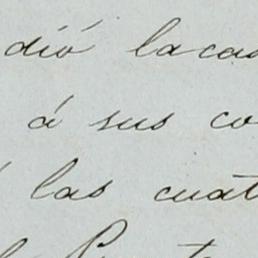 dió la cas
á sus co
las cuat